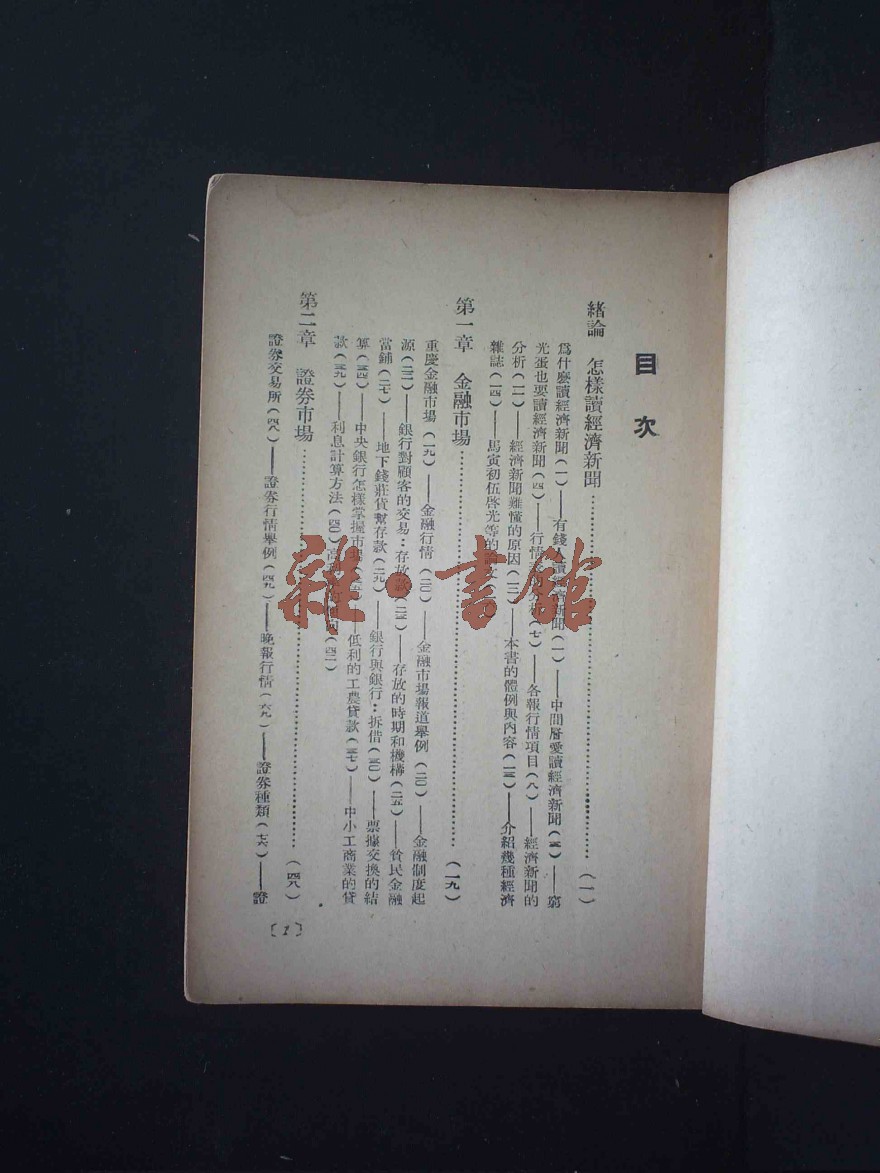 目次
緒論　怎樣讀經濟新聞……（一）
爲什麼讀經濟新聞（一）——有錢人讀經濟新聞（一）——中間層愛讀經濟新聞（三）——窮
光蛋也要讀經濟新聞（四）——行情（七）——各報行情項目（八）——經濟新聞的
分析（一一）——經濟新聞難懂的原因（一二）——本書的體例與內容（一三）——介紹幾種經濟
雜誌（一四）——馬寅初伍啓光等的論文
第一章　金融市場……（一九）
重慶金融市場（一九）——金融行情（二〇）——金融市場報道舉例（二〇）——金融制度起
源（二二）——銀行對顧客的交易：存放款（二三）——存放的時期和機構（二五）——貧民金融
當鋪（二七）——地下錢莊貨幫存款（二九）——銀行與銀行：拆借（三〇）——票據交換的結
算（三四）——中央銀行怎樣掌握市場——低利的工農貸款（三七）——中小工商業的貸
款（三九）——利息計算方法（四〇）高（四二）
第二章　證券市場……（四八）
證券交易所（四八）——證券行情舉例（四九）——晚報行情（六九）——證券種類（七六）——證
〔1〕
雜·書館